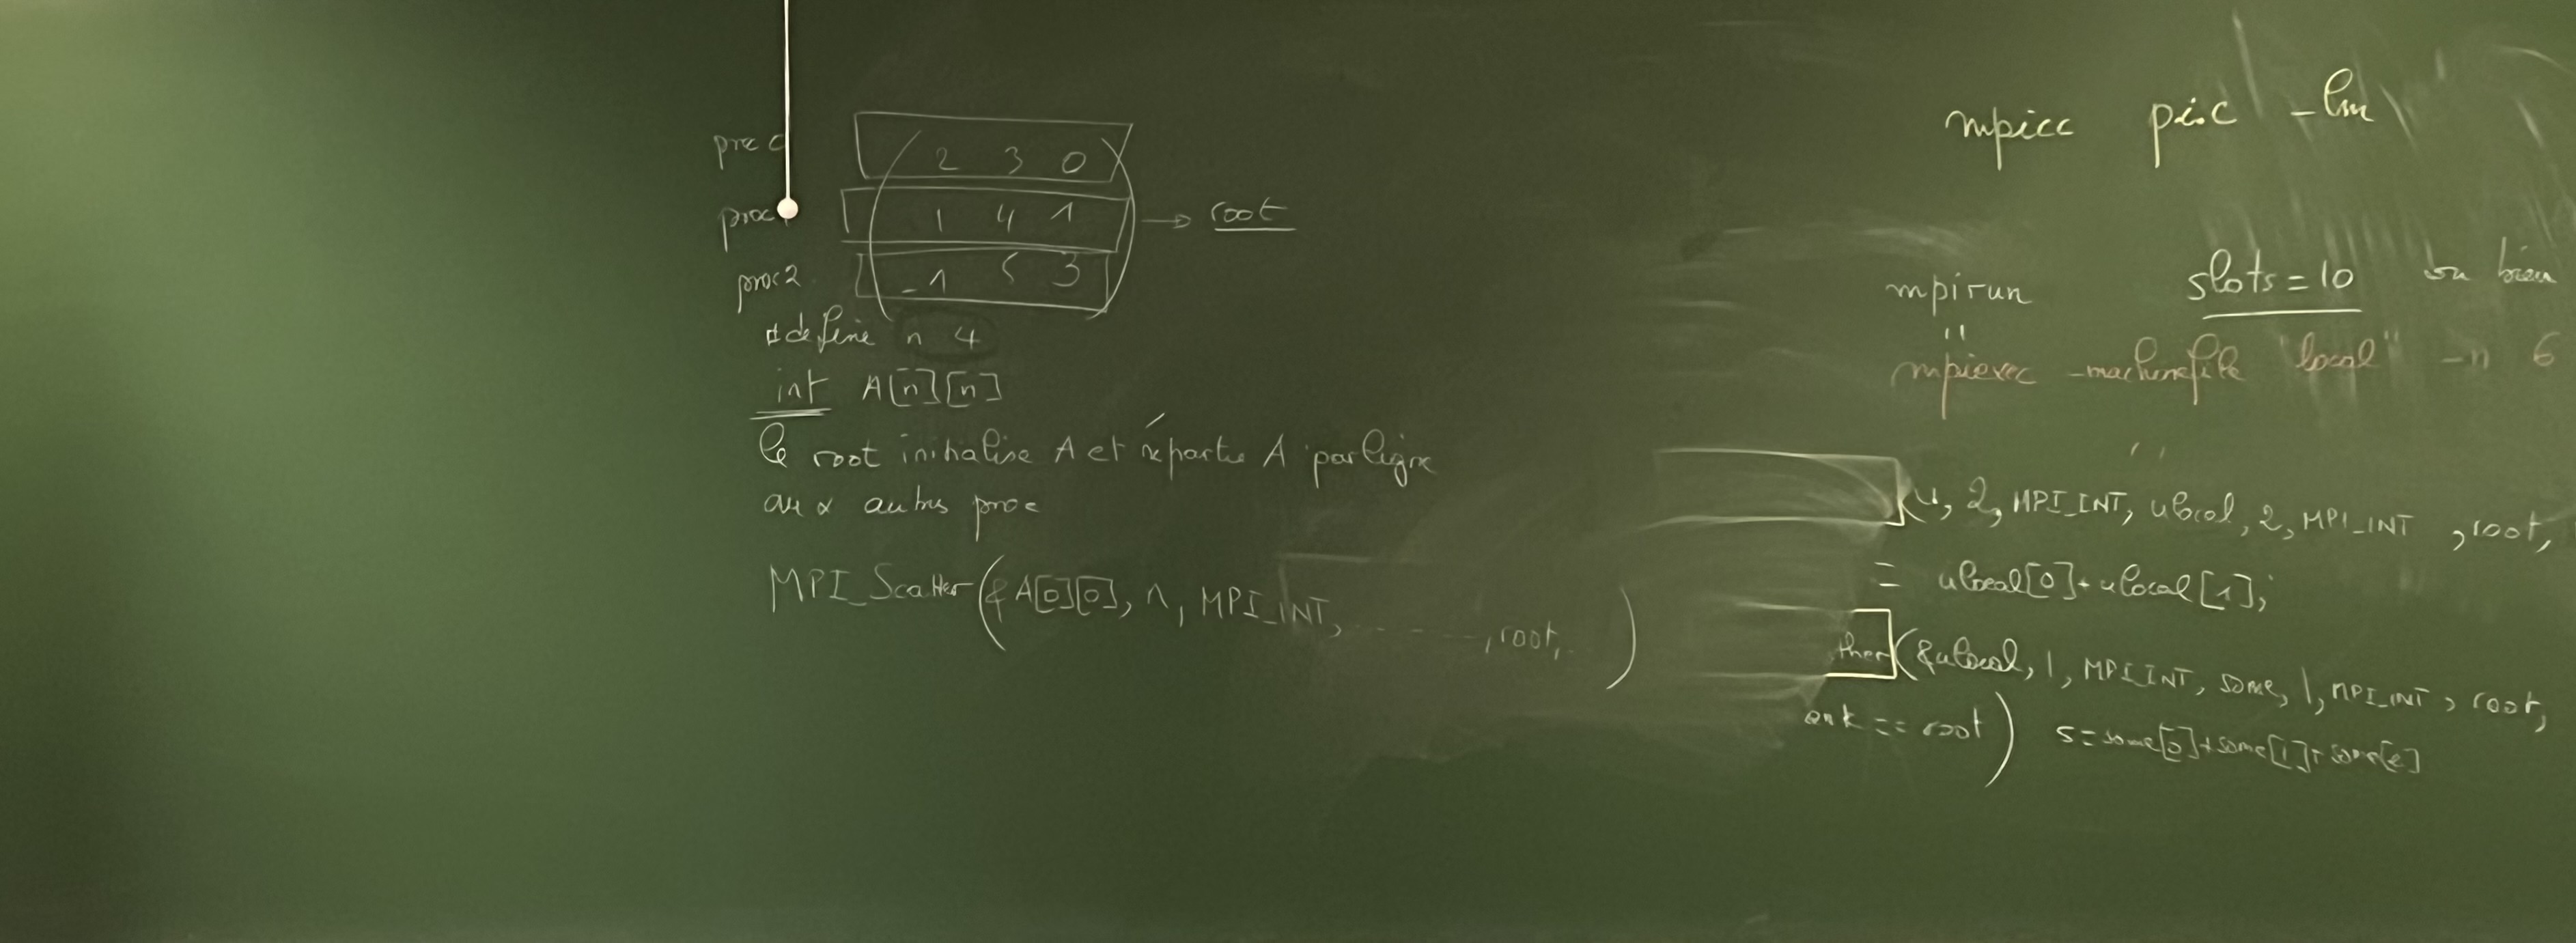 proc 2 3 0
proc 1 4 1 → root
proc2 -1 5 3
#define n 4
int A[n][n]
le root initialise A et répartie A par ligne
aux autres proc
MPI_Scatter(&A[0][0], n, MPI_INT, ......, root, .. )
mpicc pi.c -lm
mpirun slots=10 ou bien
"
mpiexec -machinefile "local" -n 6
(u, 2, MPI_INT, ulocal, 2, MPI_INT, root,
= ulocal[0]+ulocal[1];
ther(&ulocal, 1, MPI_INT, some, 1, MPI_INT, root,
ank == root) s=some[0]+some[1]+some[2]